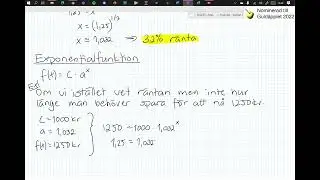 x = (1,25)^1/3
x ≈ 1,032 ⇒ 3,2% ränta
Nominerad till
Guldäpplet 2022
Exponentialfunktion
f(x) = C · a^x
Ex)
Om vi istället vet räntan men inte hur
länge man behöver spara för att nå 1250 kr.
C = 1000 kr
a = 1,032
f(x) = 1250 kr
1250 = 1000 · 1,032^x
1,25 = 1,032